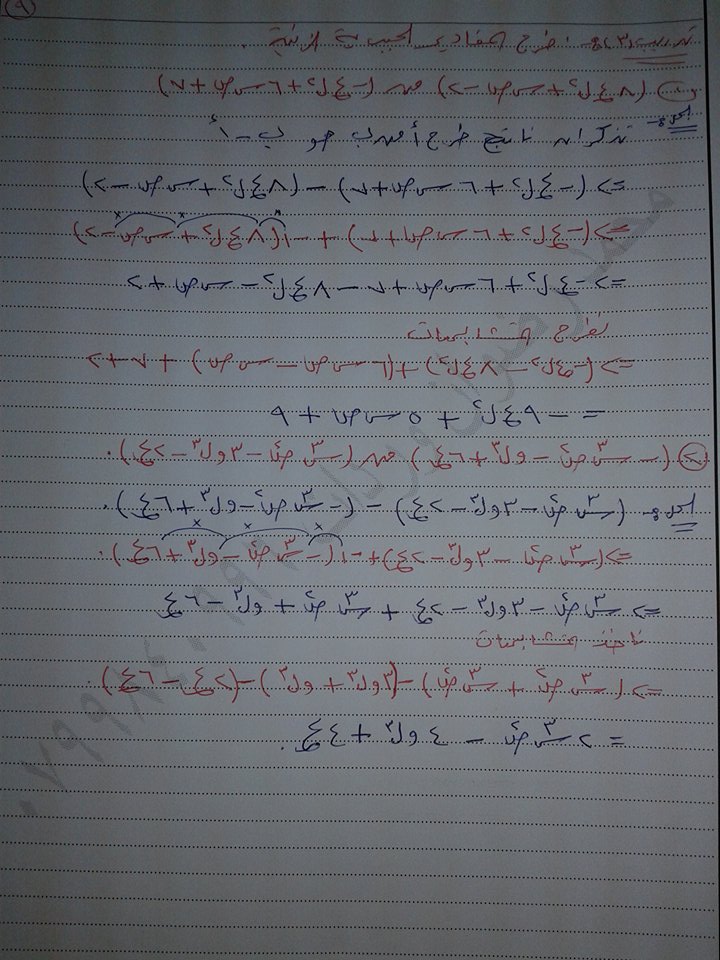 (٩)
تدريب (٣) : طرح المقادير الجبرية الآتية .
(١) (٨ع ل٢ + س ص - ٢) من (-ع ل٢ + ٦ س ص + ٧)
الحل : تذكر أن ناتج طرح أ من ب هو ب - أ
=> (-ع ل٢ + ٦ س ص + ٧) - (٨ع ل٢ + س ص - ٢)
=> (-ع ل٢ + ٦ س ص + ٧) + -١(٨ع ل٢ + س ص - ٢)
=> -ع ل٢ + ٦ س ص + ٧ - ٨ع ل٢ - س ص + ٢
نطرح المتشابهات
=> (-ع ل٢ - ٨ع ل٢) + (٦ س ص - س ص) + ٧ + ٢
= -٩ع ل٢ + ٥ س ص + ٩
(٢) (-س٣ ص٢ - ول٣ + ٦ع) من (س٣ ص٢ - ٣ول٣ - ٢ع) .
الحل : (س٣ ص٢ - ٣ول٣ - ٢ع) - (-س٣ ص٢ - ول٣ + ٦ع) .
=> (س٣ ص٢ - ٣ول٣ - ٢ع) + -١(-س٣ ص٢ - ول٣ + ٦ع) .
=> س٣ ص٢ - ٣ول٣ - ٢ع + س٣ ص٢ + ول٣ - ٦ع
نأخذ المتشابهات
=> (س٣ ص٢ + س٣ ص٢) - (٣ول٣ + ول٣) - (٢ع - ٦ع) .
= ٢س٣ ص٢ - ٤ول٣ + ٤ع .